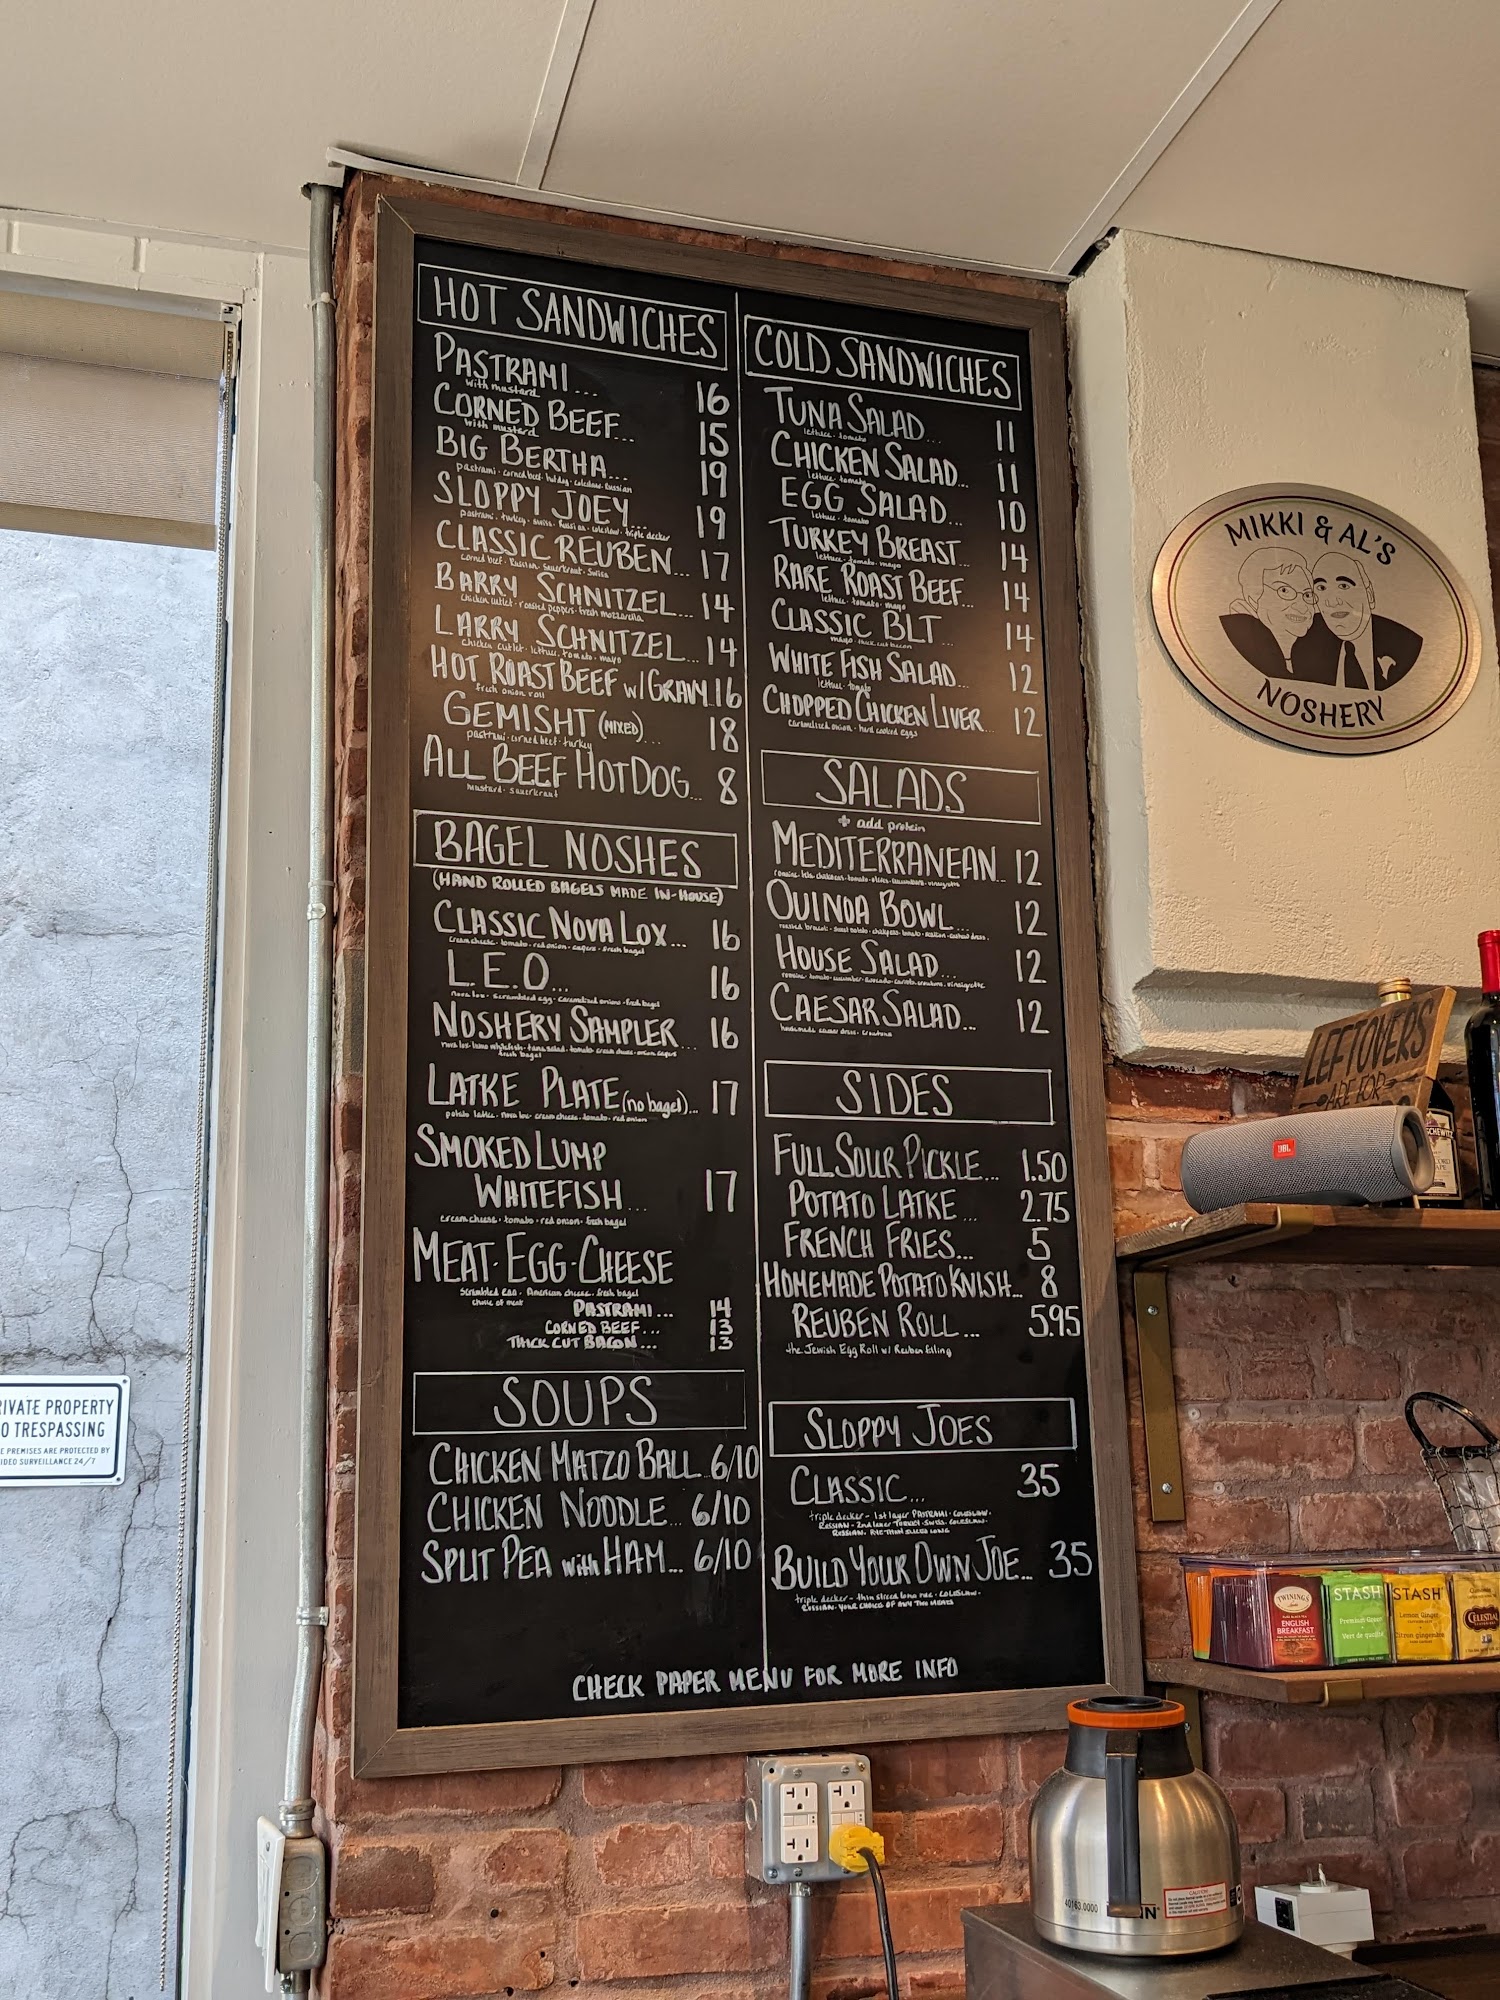 HOT SANDWICHES
PASTRAMI... 16
with mustard
CORNED BEEF... 15
with mustard
BIG BERTHA... 19
pastrami · corned beef · hot dog · coleslaw · Russian
SLOPPY JOEY... 19
pastrami · turkey · swiss · Russian · coleslaw · triple decker
CLASSIC REUBEN... 17
corned beef · Russian · Sauerkraut · Swiss
BARRY SCHNITZEL... 14
chicken cutlet · roasted peppers · fresh mozzarella
LARRY SCHNITZEL... 14
chicken cutlet · lettuce · tomato · mayo
HOT ROAST BEEF w/ GRAVY 16
fresh onion roll
GEMISHT (MIXED)... 18
pastrami · corned beef · turkey
ALL BEEF HOT DOG... 8
mustard · sauerkraut
BAGEL NOSHES
(HAND ROLLED BAGELS MADE IN-HOUSE)
CLASSIC NOVA LOX... 16
cream cheese · tomato · red onion · capers · fresh bagel
L.E.O... 16
nova lox · scrambled egg · caramelized onions · fresh bagel
NOSHERY SAMPLER... 16
nova lox · lump whitefish · tuna salad · tomato · cream cheese · onion · capers
fresh bagel
LATKE PLATE (no bagel)... 17
potato latke · nova lox · cream cheese · tomato · red onion
SMOKED LUMP
WHITEFISH... 17
cream cheese · tomato · red onion · fresh bagel
MEAT·EGG·CHEESE
Scrambled Egg · American cheese · fresh bagel
choice of meat
PASTRAMI... 14
CORNED BEEF... 13
THICK CUT BACON... 13
SOUPS
CHICKEN MATZO BALL... 6/10
CHICKEN NOODLE... 6/10
SPLIT PEA with HAM... 6/10
COLD SANDWICHES
TUNA SALAD... 11
lettuce · tomato
CHICKEN SALAD... 11
lettuce · tomato
EGG SALAD... 10
lettuce · tomato
TURKEY BREAST... 14
lettuce · tomato · mayo
RARE ROAST BEEF... 14
lettuce · tomato · mayo
CLASSIC BLT... 14
mayo · thick cut bacon
WHITE FISH SALAD... 12
lettuce · tomato
CHOPPED CHICKEN LIVER... 12
caramelized onion · hard cooked eggs
SALADS
+ add protein
MEDITERRANEAN... 12
QUINOA BOWL... 12
HOUSE SALAD... 12
romaine · tomato · cucumber · avocado · carrots · croutons · vinaigrette
CAESAR SALAD... 12
homemade caesar dress. · croutons
SIDES
FULL SOUR PICKLE... 1.50
POTATO LATKE... 2.75
FRENCH FRIES... 5
HOMEMADE POTATO KNISH... 8
REUBEN ROLL... 5.95
the Jewish Egg Roll w/ Reuben filling
SLOPPY JOES
CLASSIC... 35
triple decker - 1st layer PASTRAMI · COLESLAW ·
RUSSIAN - 2nd layer TURKEY · SWISS · COLESLAW ·
RUSSIAN. RYE THIN SLICED LONG
BUILD YOUR OWN JOE... 35
triple decker - thin sliced long rye · COLESLAW ·
RUSSIAN · YOUR CHOICE OF ANY TWO MEATS
CHECK PAPER MENU FOR MORE INFO
MIKKI & AL'S
NOSHERY
LEFTOVERS
ARE FOR
JBL
RIVATE PROPERTY
O TRESPASSING
E PREMISES ARE PROTECTED BY
IDEO SURVEILLANCE 24/7
TWININGS
ENGLISH
BREAKFAST
STASH
Premium Green
Vert de qualité
STASH
Lemon Ginger
Citron gingembre
CELESTIAL
40163.0000
CAUTION